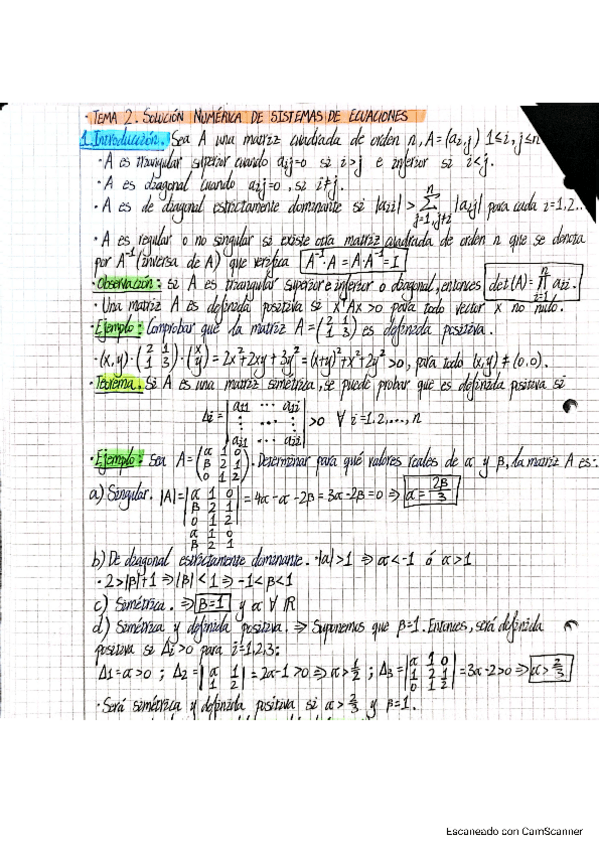 · TEMA 2. SOLUCIÓN NUMÉRICA DE SISTEMAS DE ECUACIONES
1. Introducción. Sea A una matriz cuadrada de orden n, A = (ai,j) 1≤i,j≤n
· A es triangular superior cuando aij=0 si i>j e inferior si i<j.
· A es diagonal cuando aij=0, si i≠j.
· A es de diagonal estrictamente dominante si |aii| > n∑j=1,j≠i |aij| para cada i=1,2..
· A es regular o no singular si existe otra matriz cuadrada de orden n que se denota
por A⁻¹ (inversa de A) que verifica A⁻¹·A = A·A⁻¹ = I
· Observación: si A es triangular superior e inferior o diagonal, entonces det(A) = n∏i=1 aii.
· Una matriz A es definida positiva si xᵗAx>0 para todo vector x no nulo.
· Ejemplo: Comprobar que la matriz A = (2 1 / 1 3) es definida positiva.
· (x,y)·(2 1 / 1 3)·(x / y) = 2x²+2xy+3y² = (x+y)²+x²+2y² >0, para todo (x,y) ≠ (0,0).
· Teorema. Si A es una matriz simétrica, se puede probar que es definida positiva si
Δi = |a11 ⋯ a1i / ⋮ ⋯ ⋮ / ai1 ⋯ aii| >0 ∀ i=1,2,...,n
· Ejemplo: Sea A = (α 1 0 / β 2 1 / 0 1 2). Determinar para qué valores reales de α y β, la matriz A es:
a) Singular. |A| = |α 1 0 / β 2 1 / 0 1 2 / α 1 0 / β 2 1| = 4α-α-2β = 3α-2β = 0 ⇒ α = 2β/3
b) De diagonal estrictamente dominante. · |α|>1 ⇒ α<-1 ó α>1
· 2>|β|+1 ⇒ |β|<1 ⇒ -1<β<1
c) Simétrica. ⇒ β=1 y α ∀ ℝ
d) Simétrica y definida positiva. ⇒ Suponemos que β=1. Entonces, será definida
positiva si Δi>0 para i=1,2,3:
Δ1=α>0 ; Δ2 = |α 1 / 1 2| = 2α-1>0 ⇒ α>1/2 ; Δ3 = |α 1 0 / 1 2 1 / 0 1 2| = 3α-2>0 ⇒ α>2/3
· Será simétrica y definida positiva si α>2/3 y β=1.
Escaneado con CamScanner